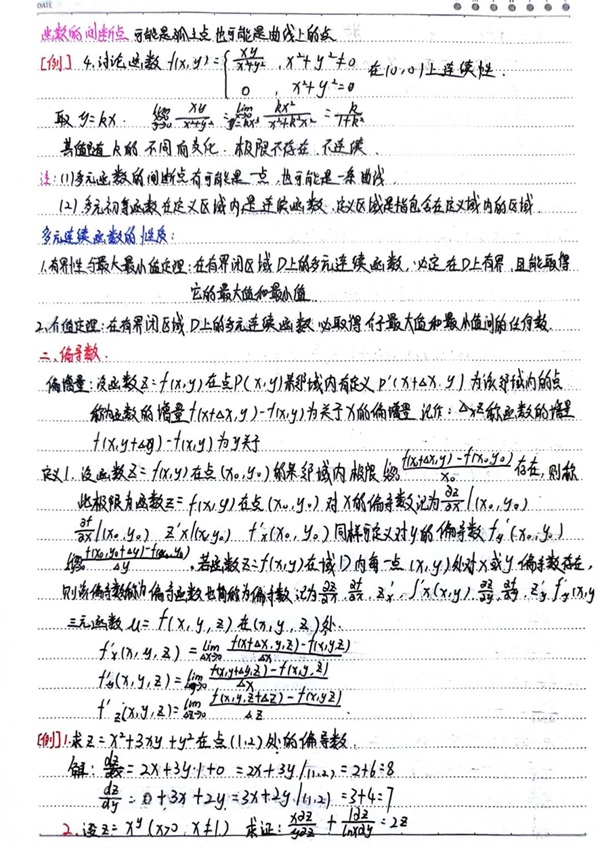 DATE
函数的间断点可能是孤立点也可能是曲线上的点
[例] 4.讨论函数 f(x,y)={ xy/x²+y² , x²+y²≠0 在(0,0)上连续性.
0 , x²+y²=0
取 y=kx. lim xy/x²+y² = lim kx²/x²+k²x² = k/1+k²
其值随 k的不同而变化. 极限不存在.不连续.
注:(1)多元函数的间断点有可能是一点,也可能是一条曲线.
(2)多元初等函数在定义区域内是连续函数、定义区域是指包含在定义域内的区域.
多元连续函数的性质:
1.有界性与最大最小值定理:在有界闭区域D上的多元连续函数,必定在D上有界,且能取得
它的最大值和最小值.
2.介值定理:在有界闭区域D上的多元连续函数必取得介于最大值和最小值间的任何数.
二、偏导数.
偏增量:设函数z=f(x,y)在点P(x,y)某邻域内有定义 P'(x+Δx.y)为该邻域内的点
称为函数的增量f(x+Δx,y)-f(x,y)为关于x的偏增量 记作:Δxz称函数的增量
f(x,y+Δy)-f(x,y)为y关于
定义1.设函数z=f(x,y)在点(x₀,y₀)的某邻域内极限 lim f(x₀+Δx,y)-f(x₀,y₀)/x₀ 存在,则称
此极限为函数z=f(x,y)在点(x₀,y₀)对x的偏导数记为∂z/∂x|(x₀,y₀)
∂f/∂x|(x₀,y₀) z'x|(x₀,y₀) f'x(x₀,y₀)同样可定义对y的偏导数fy'(x₀,y₀)
lim f(x₀,y₀+Δy)-f(x₀,y₀)/Δy .若函数z=f(x,y)在域D内每一点(x,y)处对x或y偏导数存在,
则该偏导数称为偏导函数也简称为偏导数 记为∂z/∂x.∂f/∂x.z'x.f'x(x,y).∂z/∂y.∂f/∂y.z'y f'y(x,y
三元函数 u=f(x,y,z)在(x,y,z)处.
f'x(x,y,z)=lim Δx→0 f(x+Δx,y,z)-f(x,y,z)/Δx
f'y(x,y,z)=lim f(x,y+Δy,z)-f(x,y,z)/Δx
f'z(x,y,z)=lim Δz→0 f(x,y,z+Δz)-f(x,y,z)/Δz
[例]1.求z=x²+3xy+y²在点(1,2)处的偏导数.
解: dz/dx=2x+3y·1+0=2x+3y|(1,2)=2+6=8
dz/dy=0+3x+2y=3x+2y|(1,2)=3+4=7
2.设z=x^y(x>0,x≠1.) 求证: x∂z/y∂z + 1∂z/lnx∂y=2z